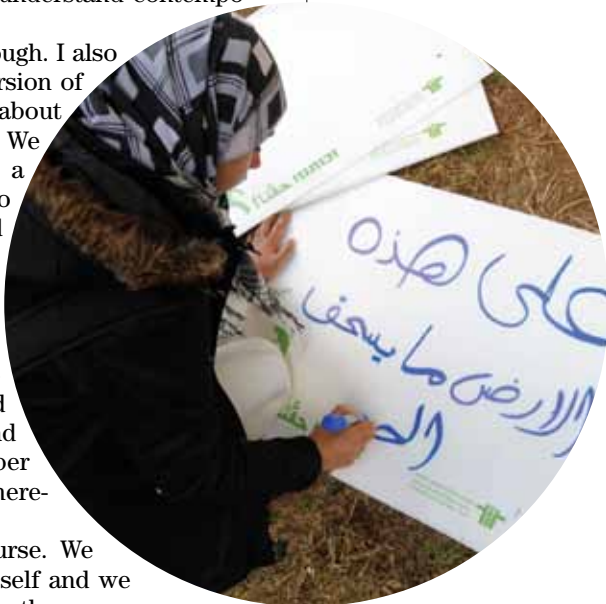 understand contempo-
ough. I also
rsion of
about
We
a
nd
ber
here-
urse. We
self and we
على هذه
الارض ما يستحق
الح